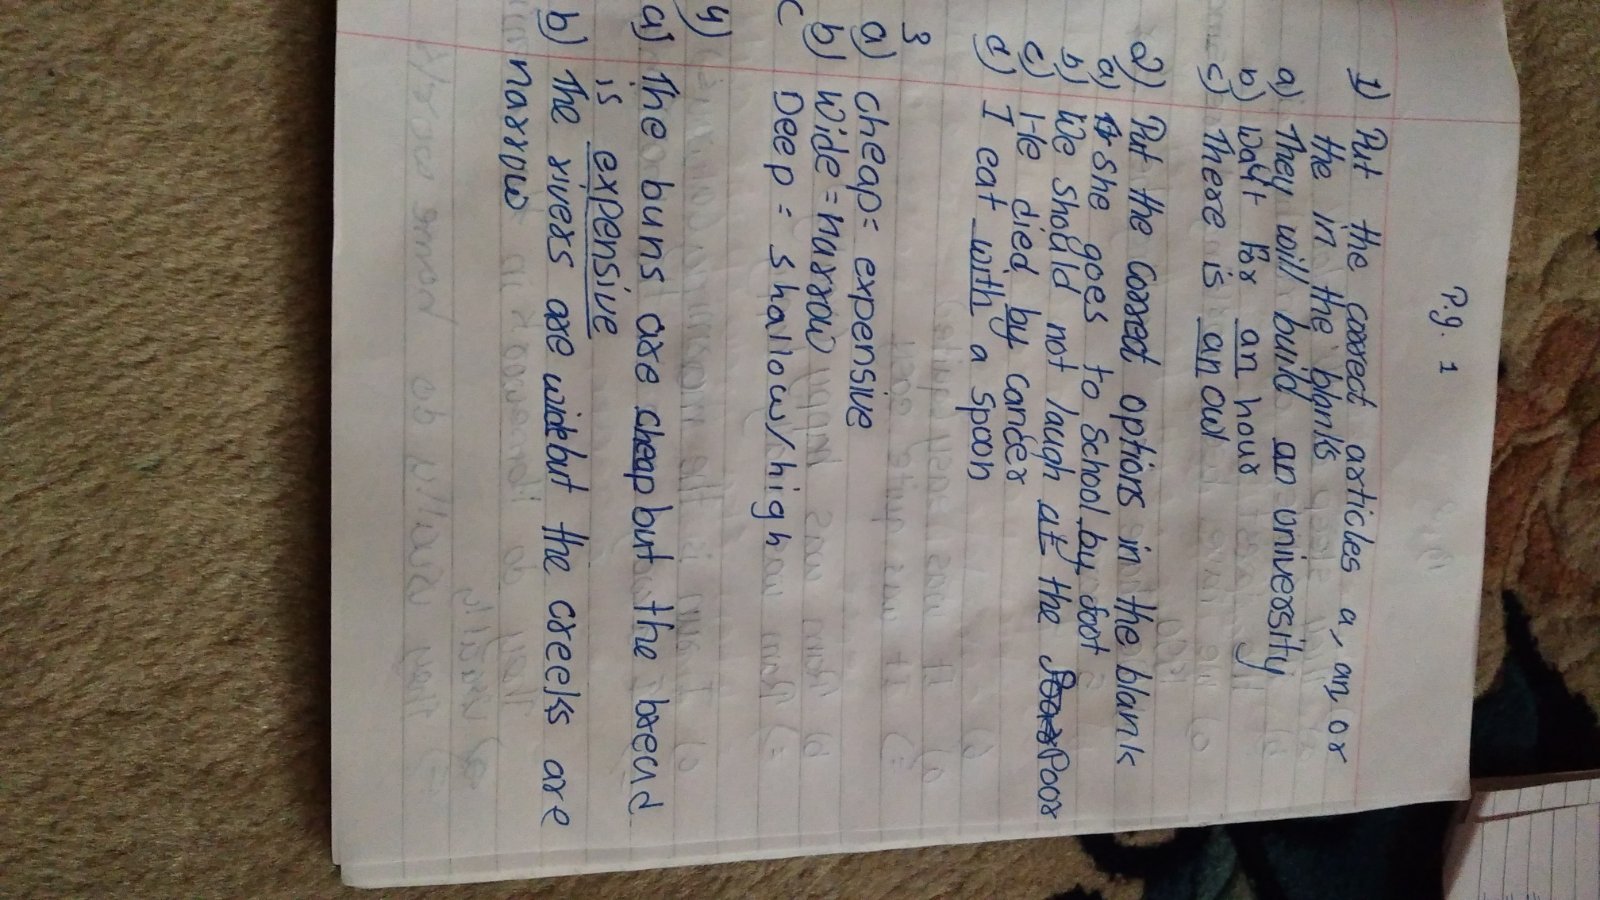 P.g. 1
1) Put the correct articles a, an, or
the in the blanks
a) They will build an university
b) wait for an hour
c) There is an owl
2) Put the correct options in the blank
a) she goes to school by foot
b) We should not laugh at the Poor
c) He died by cancer
d) I eat with a spoon
3
a) Cheap = expensive
b) Wide = narrow
C Deep = shallow/high
4)
a) The buns are cheap but the bread
is expensive
b) The rivers are wide but the creeks are
narrow